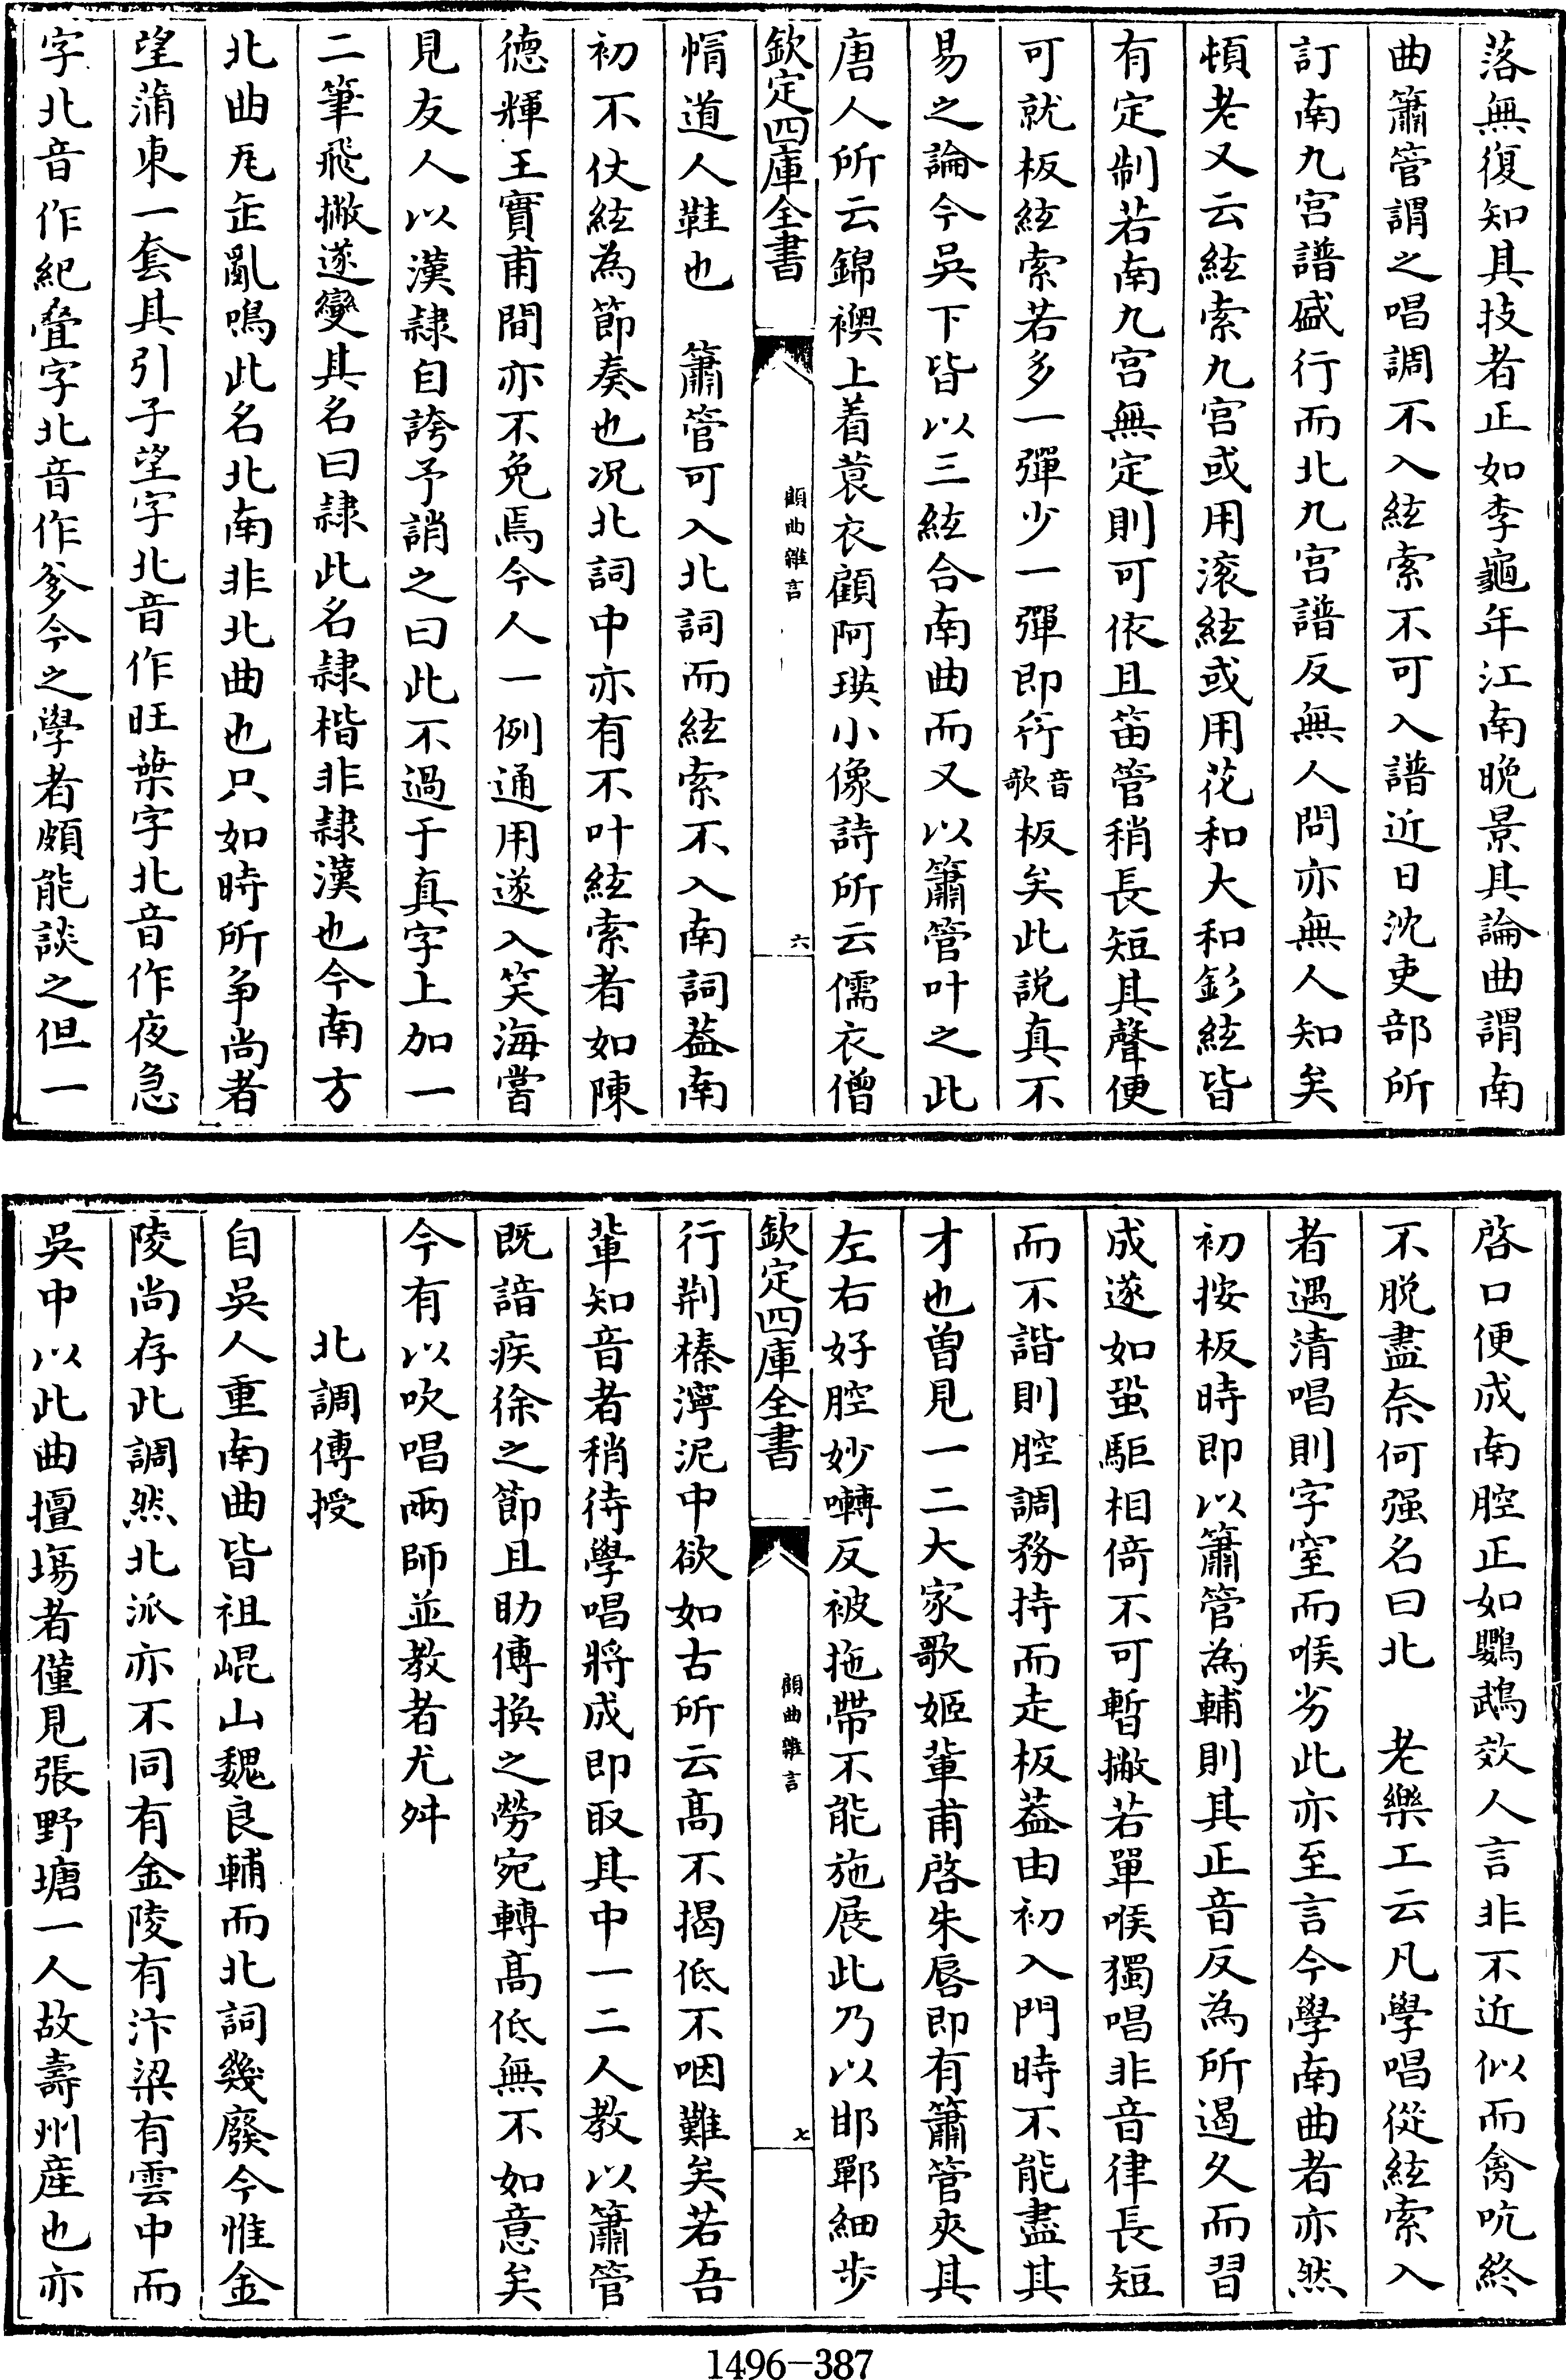 落無復知其技者正如李龜年江南晚景其論曲謂南
曲簫管謂之唱調不入絃索不可入譜近日沈吏部所
訂南九宫譜盛行而北九宫譜反無人問亦無人知矣
頓老又云絃索九宫或用滚絃或用花和大和釤絃皆
有定制若南九宫無定則可依且笛管稍長短其聲便
可就板絃索若多一彈少一彈即㤚音歌板矣此説真不
易之論今吳下皆以三絃合南曲而又以簫管叶之此
唐人所云錦襖上着蓑衣顧阿瑛小像詩所云儒衣僧
欽定四庫全書
顧曲雜言
六
帽道人鞋也　簫管可入北詞而絃索不入南詞葢南
初不仗絃為節奏也况北詞中亦有不叶絃索者如陳
德輝王實甫間亦不免焉今人一例通用遂入笑海嘗
見友人以漢隷自誇予誚之曰此不過于真字上加一
二筆飛撇遂變其名曰隷此名隷楷非隷漢也今南方
北曲瓦缶亂鳴此名北南非北曲也只如時所争尚者
望蒲東一套其引子望字北音作旺葉字北音作夜急
字北音作紀叠字北音作爹今之學者頗能談之但一
啓口便成南腔正如鸚鵡效人言非不近似而禽吭終
不脱盡奈何强名曰北　老樂工云凡學唱從絃索入
者遇清唱則字窒而喉劣此亦至言今學南曲者亦然
初按板時即以簫管為輔則其正音反為所遏久而習
成遂如蛩駏相倚不可暫撇若單喉獨唱非音律長短
而不諧則腔調務持而走板葢由初入門時不能盡其
才也曽見一二大家歌姬輩甫啓朱唇即有簫管夾其
左右好腔妙囀反被拖帶不能施展此乃以邯鄲細步
欽定四庫全書
顧曲雜言
七
行荆榛濘泥中欲如古所云髙不揭低不咽難矣若吾
輩知音者稍待學唱將成即取其中一二人教以簫管
既諳疾徐之節且助傳換之勞宛轉髙低無不如意矣
今有以吹唱兩師並教者尤舛
北調傳授
自吳人重南曲皆祖崐山魏良輔而北詞幾廢今惟金
陵尚存此調然北派亦不同有金陵有汴梁有雲中而
吳中以此曲擅場者僅見張野塘一人故壽州産也亦
1496-387